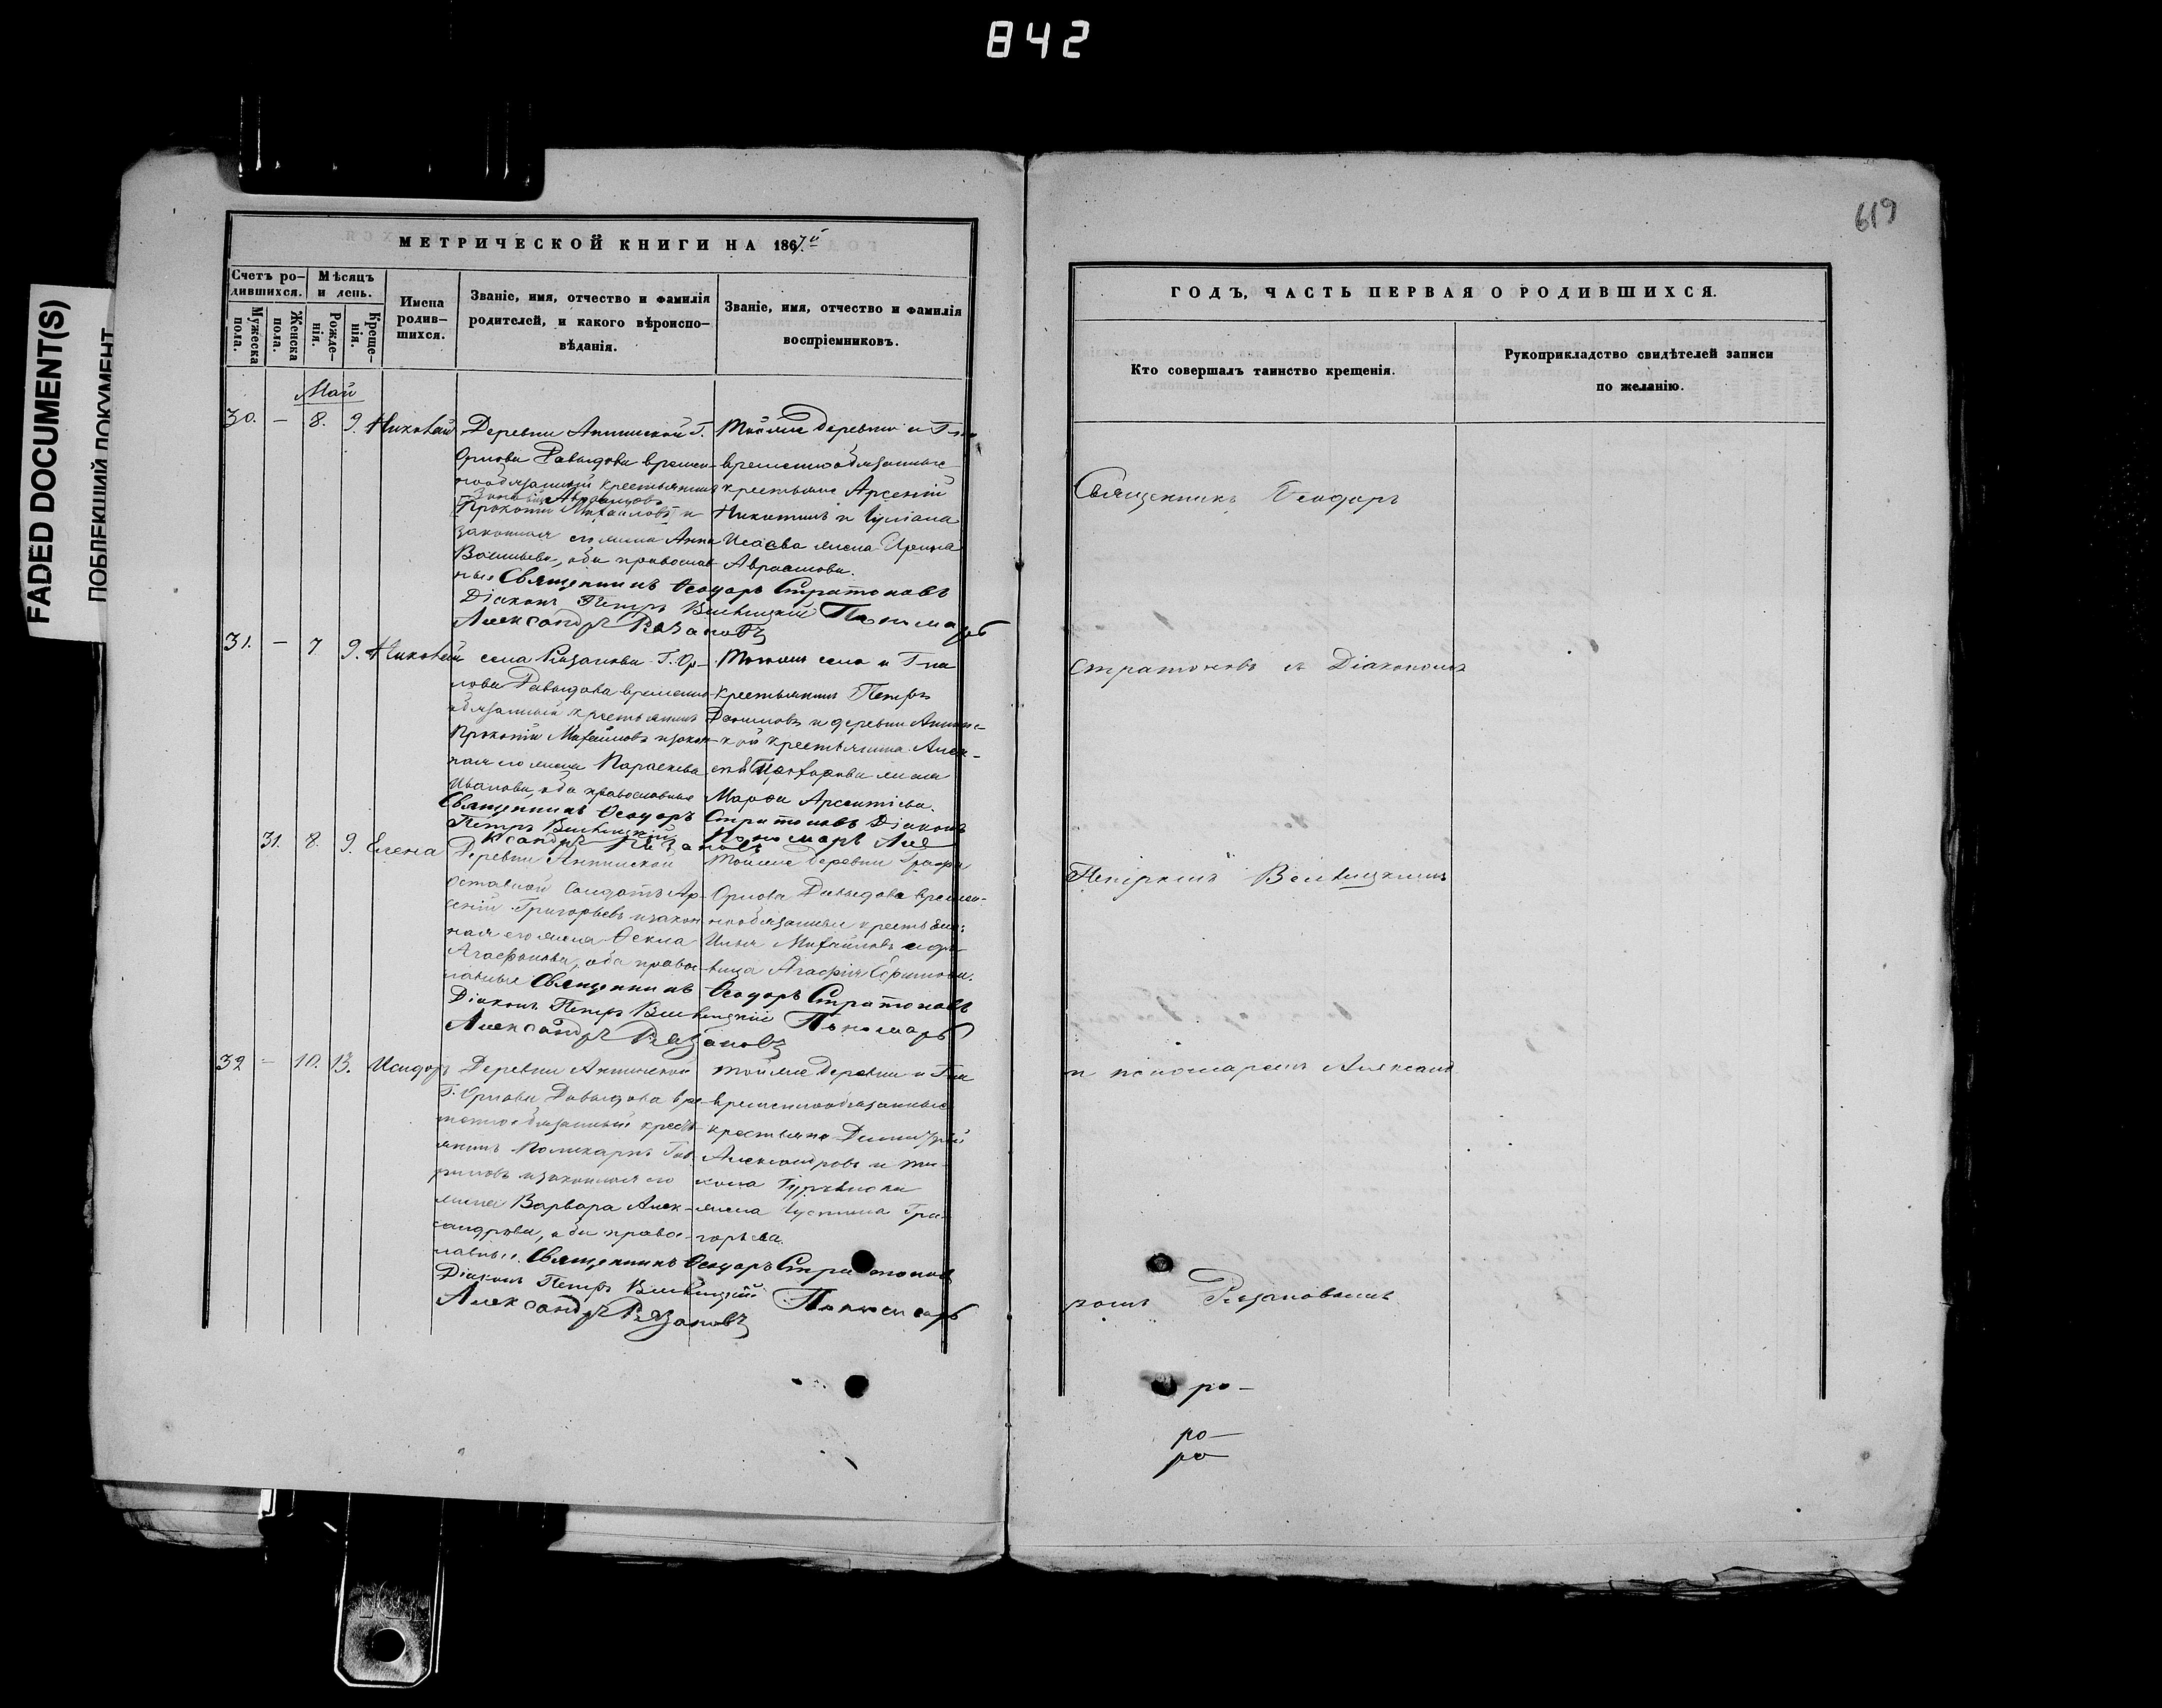 842
FADED DOCUMENT(S)
ПОБЛЕКШИЙ ДОКУМЕНТ
619
МЕТРИЧЕСКОЙ КНИГИ НА 1867.й
Счетъ ро-
дившихся.
Мѣсяцъ
и день.
Мужеска
пола.
Женска
пола.
Рожде-
нія.
Креще-
нія.
Имена
родив-
шихся.
Званіе, имя, отчество и фамилія
родителей, и какого вѣроиспо-
вѣданія.
Званіе, имя, отчество и фамилія
воспріемниковъ.
Май
30. — 8. 9. Николай
Деревни Г.
Орлова Давыдова времен-
нообязанный крестьянинъ
Прокопій Михайловъ и
законная его жена Анна
Васильева, оба православ-
ные Священникъ Ѳеодоръ Стратоновъ
Діаконъ Петръ Пономарь
Александръ Рязановъ
Тойже деревни и Г-на
временнообязанные
крестьяне Арсеній
Никитинъ и Іуліана
Исаева жена Ирина
Авраамова.
31. — 7 9. Николай
села Рязанова Г. Ор-
лова Давыдова временно-
обязанный крестьянинъ
Прокопій Михайловъ и закон-
ная его жена Параскева
Иванова, оба православные
Священникъ Ѳеодоръ Стратоновъ Діаконъ
Петръ Пономарь Але
ксандръ Рязановъ
Тогоже села и Г-на
крестьянинъ Петръ
Даниловъ и деревни
кой крестьянина Алек-
сѣя жена
Марѳа Арсентіева.
31. 8. 9. Елена
Деревни
Отставной Солдатъ Ар-
сеній Григорьевъ и закон-
ная его жена Ѳекла
Агаѳонова, оба правос-
лавные Священникъ Ѳеодоръ Стратоновъ
Діаконъ Петръ Пономарь
Александръ Рязановъ
Тойже деревни Графа
Орлова Давыдова времен-
нообязанный крестьян:
Илья Михайловъ и дѣ-
вица Агафія Ефимова.
32 — 10. 13. Исидоръ
Деревни
Г. Орлова Давыдова вре-
меннообязанный кресть-
янинъ Поликарпъ Гав-
риловъ и законная его
жена Варвара Алек-
сандрова, оба правос-
лавные. Священникъ Ѳеодоръ Стратоновъ
Діаконъ Петръ Пономарь
Александръ Рязановъ
тойже деревни и Г-на
временнообязанные
крестьяне Димитрій
Александровъ и
жена Іустина Гри-
горьева.
ГОДЪ, ЧАСТЬ ПЕРВАЯ О РОДИВШИХСЯ.
Кто совершалъ таинство крещенія.
Рукоприкладство свидѣтелей записи
по желанію.
Священникъ Ѳеодоръ
Стратоновъ съ Діакономъ
Петромъ
и пономаремъ Александ
ромъ Рязановымъ
ро-
ро-
ро-